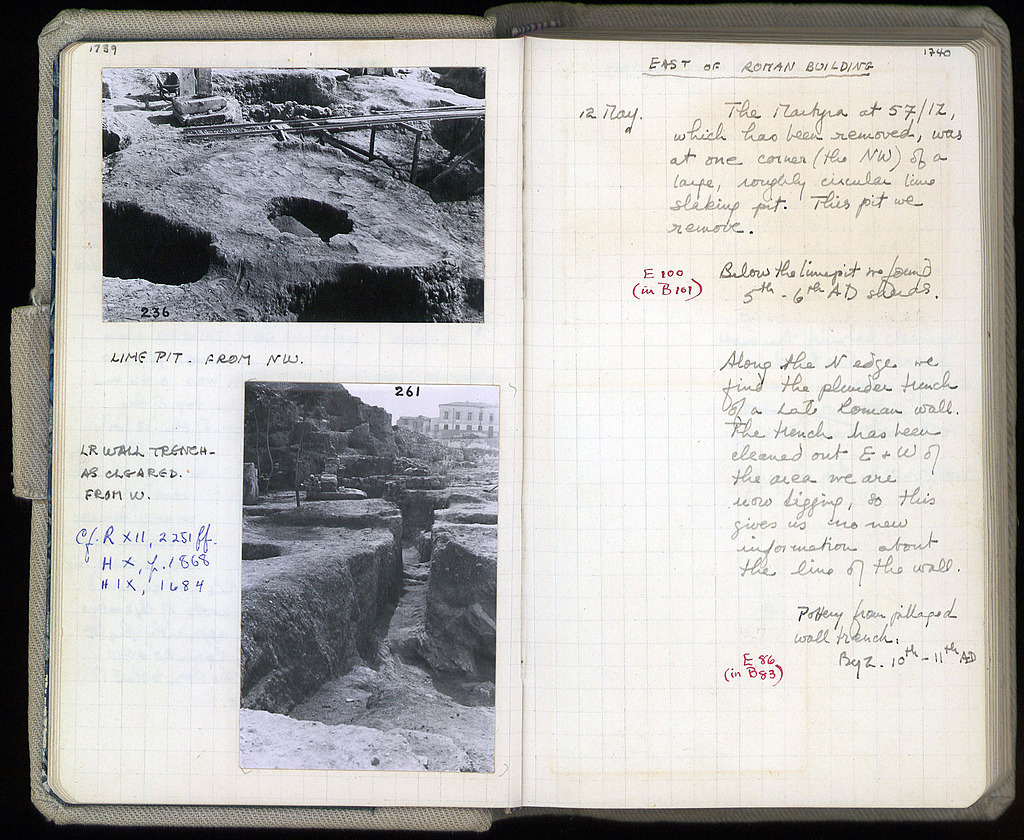 1739
236
LIME PIT. FROM NW.
261
LR WALL TRENCH-
AS CLEARED.
FROM W.
Cf. R XII, 2251ff.
H X, p. 1868
H IX, 1684
1740
EAST OF ROMAN BUILDING
12 May. The Martyra at 57/IZ,
which has been removed, was
at one corner (the NW) of a
large, roughly circular lime
slaking pit. This pit we
remove.
E 100
(in B 101)
Below the limepit we found
5th - 6th AD sherds.
Along the N edge we
find the plunder trench
of a Late Roman wall.
The trench has been
cleaned out E + W of
the area we are
now digging, so this
gives us no new
information about
the line of the wall.
Pottery from pillaged
wall trench.
E 86
(in B 83)
Byz. 10th - 11th AD